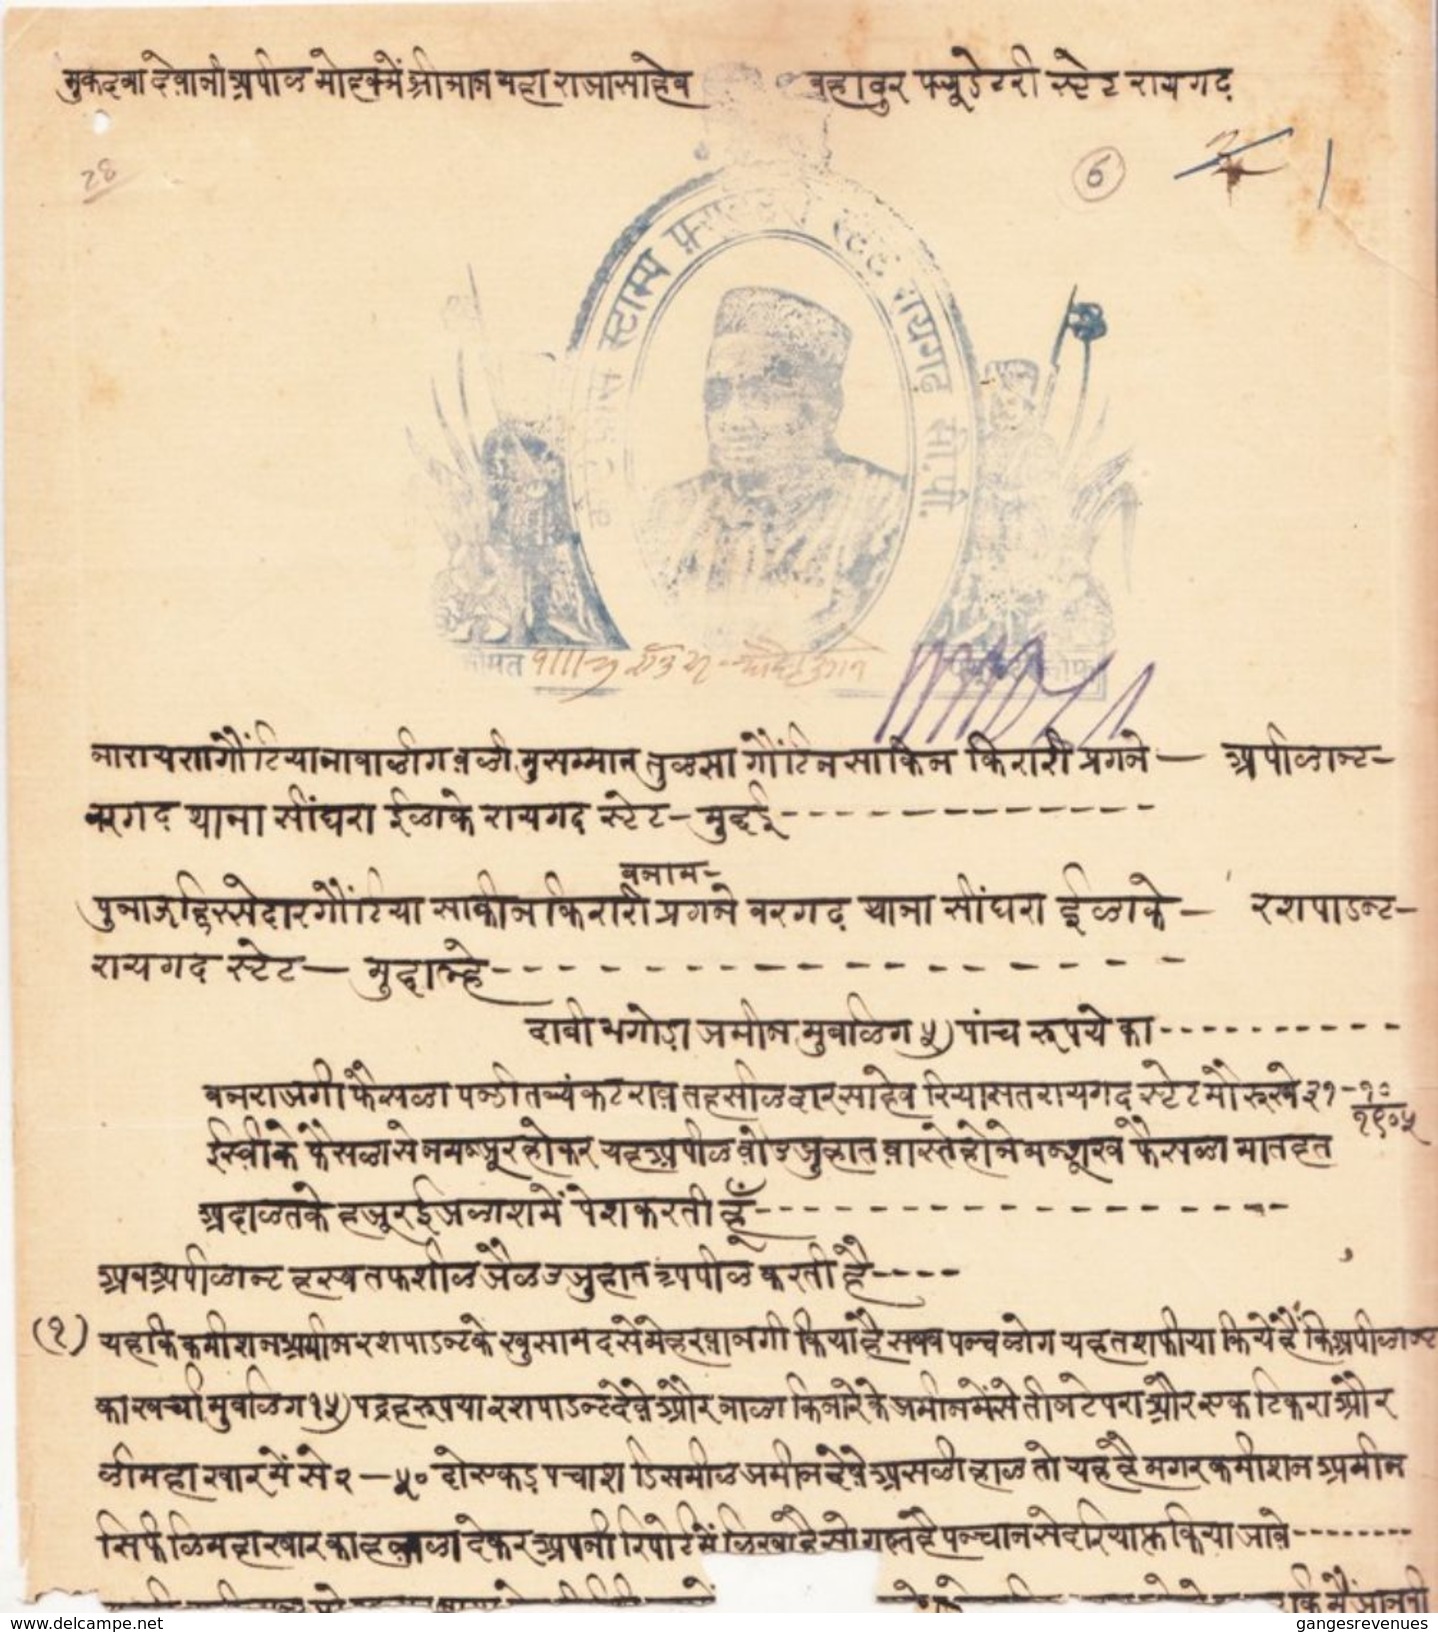 मुकदमा देवानी अपील मोहकमें श्रीमान महाराजासाहेब बहादुर फ्यूडेटरी स्टेट रायगढ़
28
6
स्टाम्प रायगढ़ सी.पी.
कीमत
नारायण गौंटिया नाबाळीग वळी मुसम्मात तुळसा गौंटिन साकिन किरारी प्रगने — अपीळान्ट-
बरगढ़ थाना सींघरा ईळाके रायगढ स्टेट - मुद्दई
बनाम-
हिस्सेदार गौंटिया साकीन किरारी प्रगने बरगढ़ थाना सींघरा ईळाके — रशपाडन्ट-
रायगढ स्टेट — मुद्दालहे
दावी जमीन मुबळिग ५) पांच रूपये का
बनराजगी फैसळा पन्डीत व्यंकटराव तहसीळदार साहेब रियासत रायगढ स्टेट मौरूखे ३१-१०
१९०५
ईस्वी के फैसळा से नमन्जूर होकर यह अपीळ वोजुहात वास्ते होने मन्शूख फैसळा मातहत
अदाळत के हजूर ईजळाश में पेश करती हूँ
अब अपीळान्ट हस्ब तफशीळ जैळ उजुहात अपीळ करती है
(१) यह कि कमीशन अमीन रशपाडन्ट के खुसामद से मेहरबानगी किया है सबब पन्च ळोग यह तशफीया किये हैं कि अपीळान्ट
का खर्चा मुबळिग १५) पंद्रह रूपया रशपाडन्ट देवे और नाळा किनारे के जमीन में से तीन टेपरा और एक टिकरा और
ळीमहा खार में से २-५० दो एकड़ पचाश डिसमीळ जमीन देवे असळी हाळ तो यह है मगर कमीशन अमीन
सिर्फ ळिमहा खार का देकर अपनी रिपोर्ट में ळिखा है सो गळत है पन्चान से दरियाफ्त किया जावे
delcampe.net
gangesrevenues